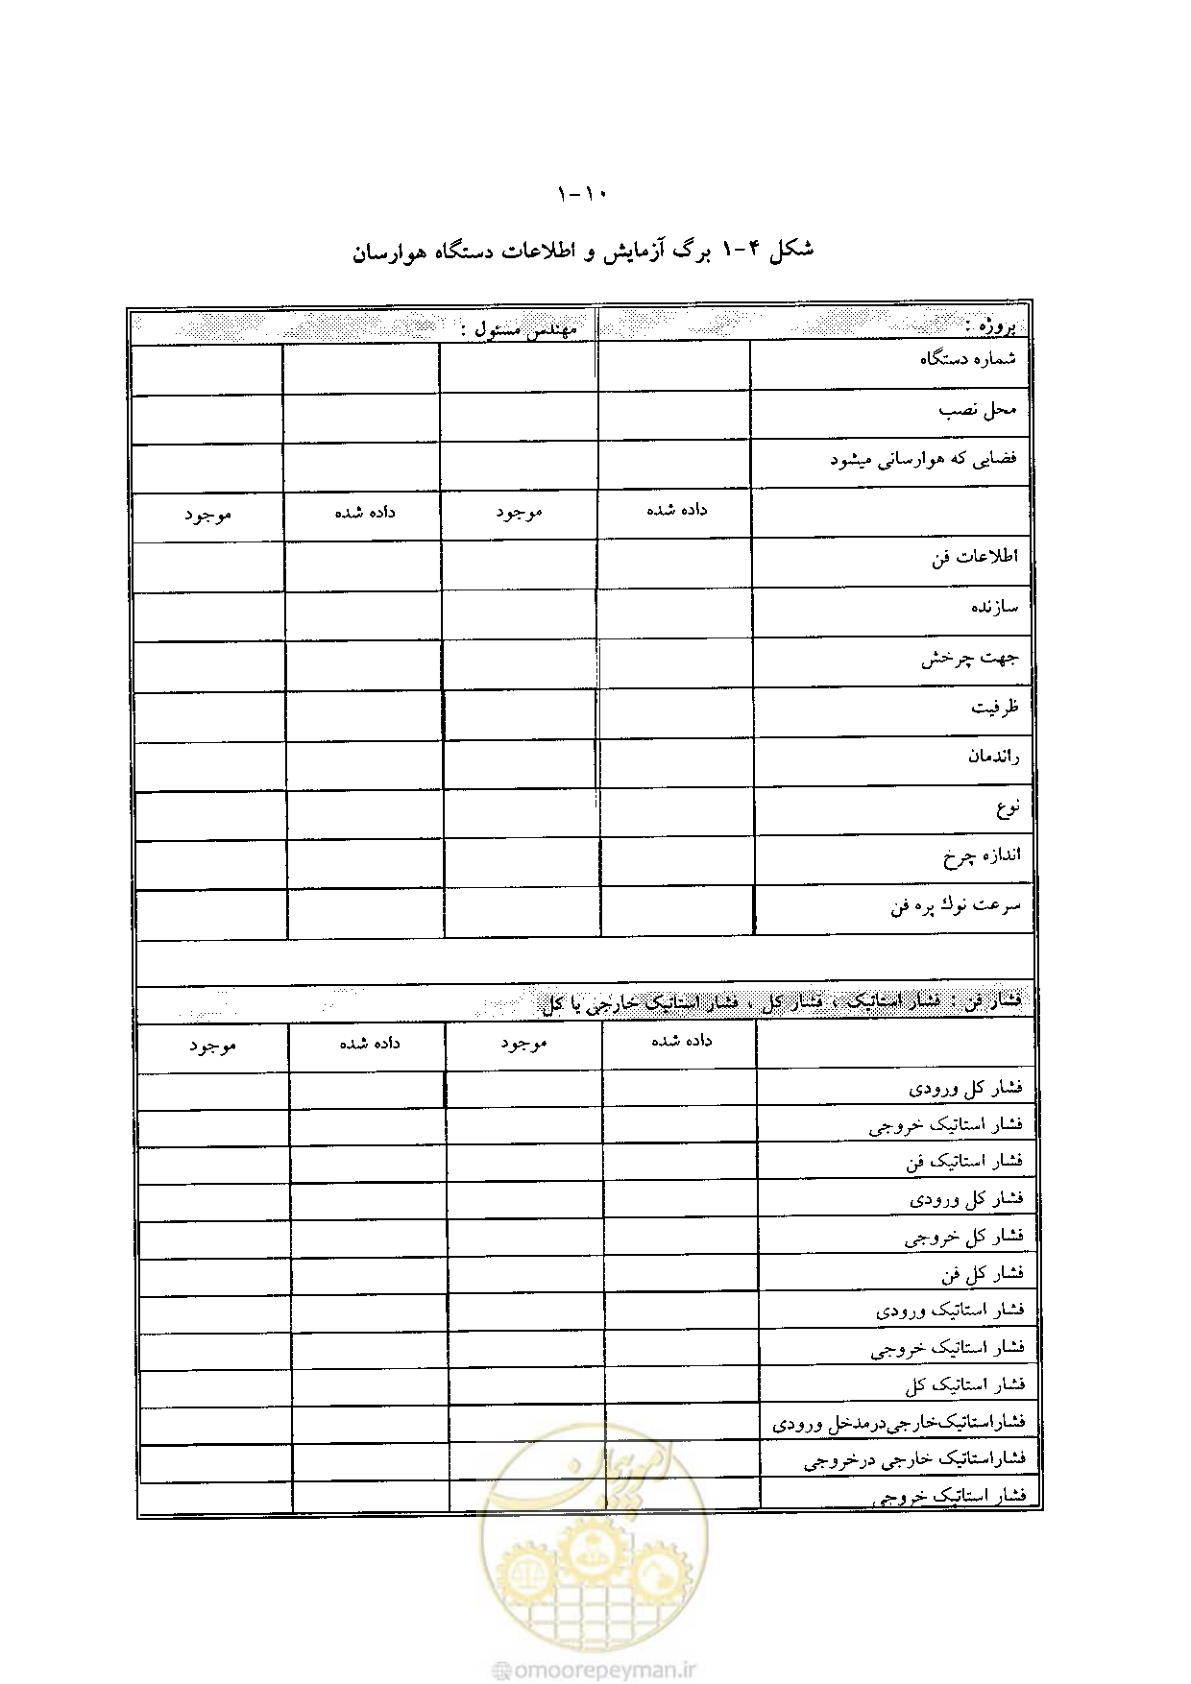 ۱-۱۰
شکل ۴-۱ برگ آزمایش و اطلاعات دستگاه هوارسان
پروژه : مهندس مسئول :
شماره دستگاه
محل نصب
فضایی که هوارسانی میشود
داده شده موجود داده شده موجود
اطلاعات فن
سازنده
جهت چرخش
ظرفیت
راندمان
نوع
اندازه چرخ
سرعت نوك پره فن
فشار فن : فشار استاتیک ، فشار کل ، فشار استاتیک خارجی یا کل
داده شده موجود داده شده موجود
فشار کل ورودی
فشار استاتیک خروجی
فشار استاتیک فن
فشار کل ورودی
فشار کل خروجی
فشار کل فن
فشار استاتیک ورودی
فشار استاتیک خروجی
فشار استاتیک کل
فشاراستاتیک‌خارجی‌درمدخل ورودی
فشاراستاتیک خارجی درخروجی
فشار استاتیک خروجی
امور پیمان
@omoorepeyman.ir